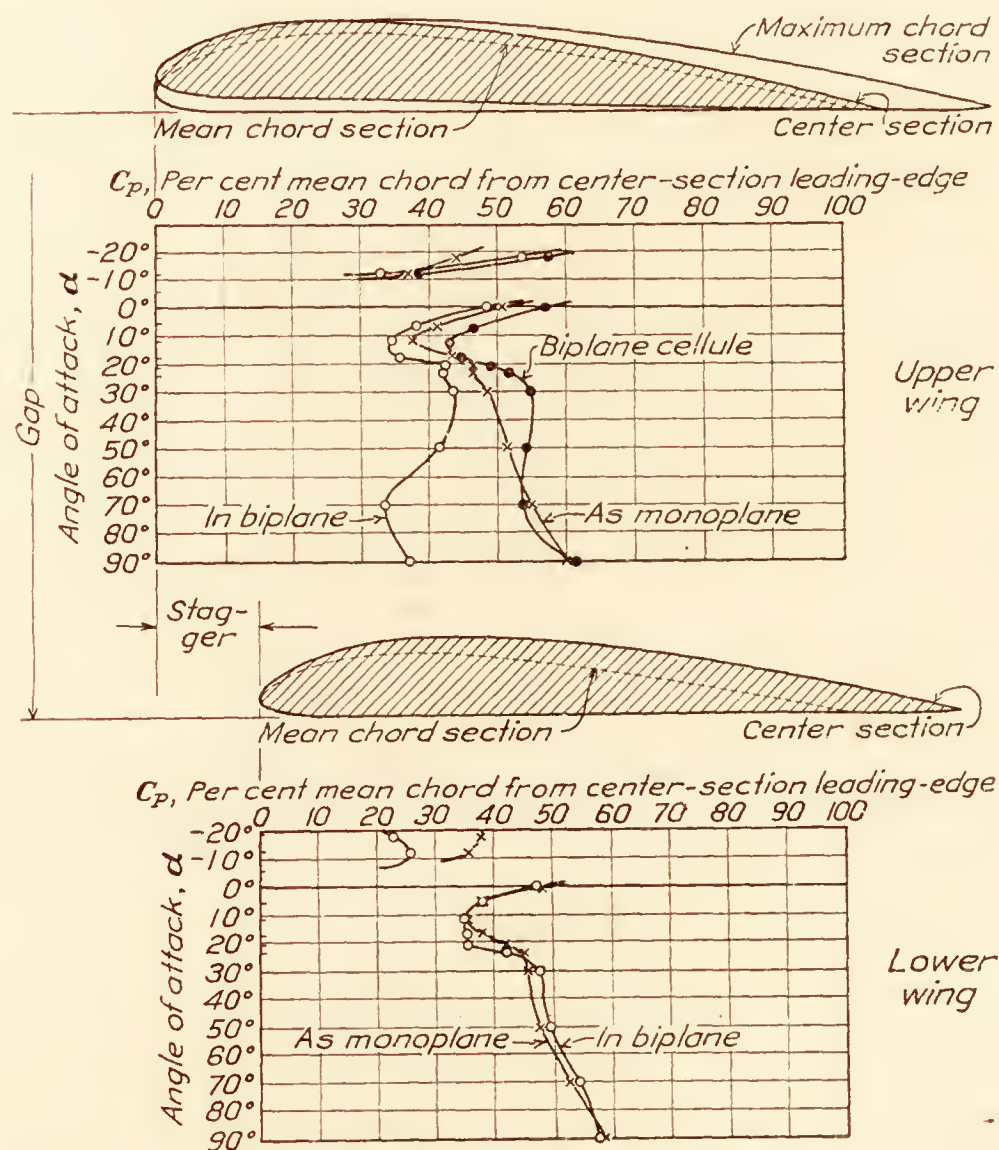 Maximum chord
section
Mean chord section
Center section
Cp, Per cent mean chord from center-section leading-edge
0 10 20 30 40 50 60 70 80 90 100
-20°
-10°
0°
10°
20°
30°
40°
50°
60°
70°
80°
90°
Angle of attack, α
Gap
Biplane cellule
In biplane
As monoplane
Upper
wing
Stag-
ger
Mean chord section
Center section
Cp, Per cent mean chord from center-section leading-edge
0 10 20 30 40 50 60 70 80 90 100
-20°
-10°
0°
10°
20°
30°
40°
50°
60°
70°
80°
90°
Angle of attack, α
As monoplane
In biplane
Lower
wing